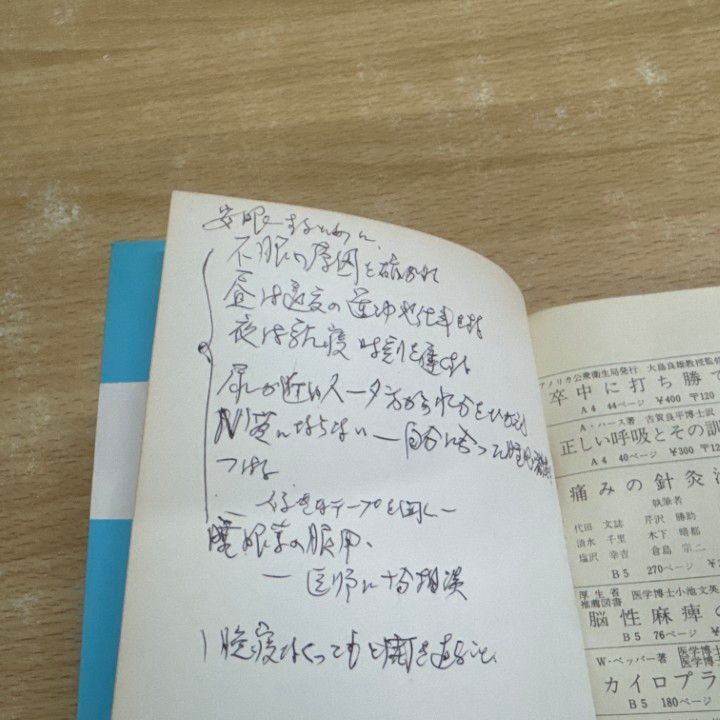 安眠するために、
不眠の原因を確かめて
昼は適度の運動や仕事をする
夜は就寝時刻を
尿が近い人ータ方から水分をひかえる
にならない — 自分に合った
つける
— 好きなテープを聞く —
睡眠薬の服用、
— 医師に十分相談
1晩寝なくってもと開き直ること、
アメリカ公衆衛生局発行 大島良雄教授監修
卒中に打ち勝て
A4 44ページ ¥400 〒120
A・ハース著 古賀良平博士訳
正しい呼吸とその訓
A4 40ページ ¥300 〒12
痛みの針灸治
執筆者
代田 文誌 芹沢 勝助
清水 千里 木下 晴都
塩沢 幸吉 倉島 宗二
B5 270ページ
厚生省推薦図書 医学博士小池文英
脳性麻痺の
B5 76ページ
W・ペッパー著 医学博士
カイロプラ
B5 180ページ